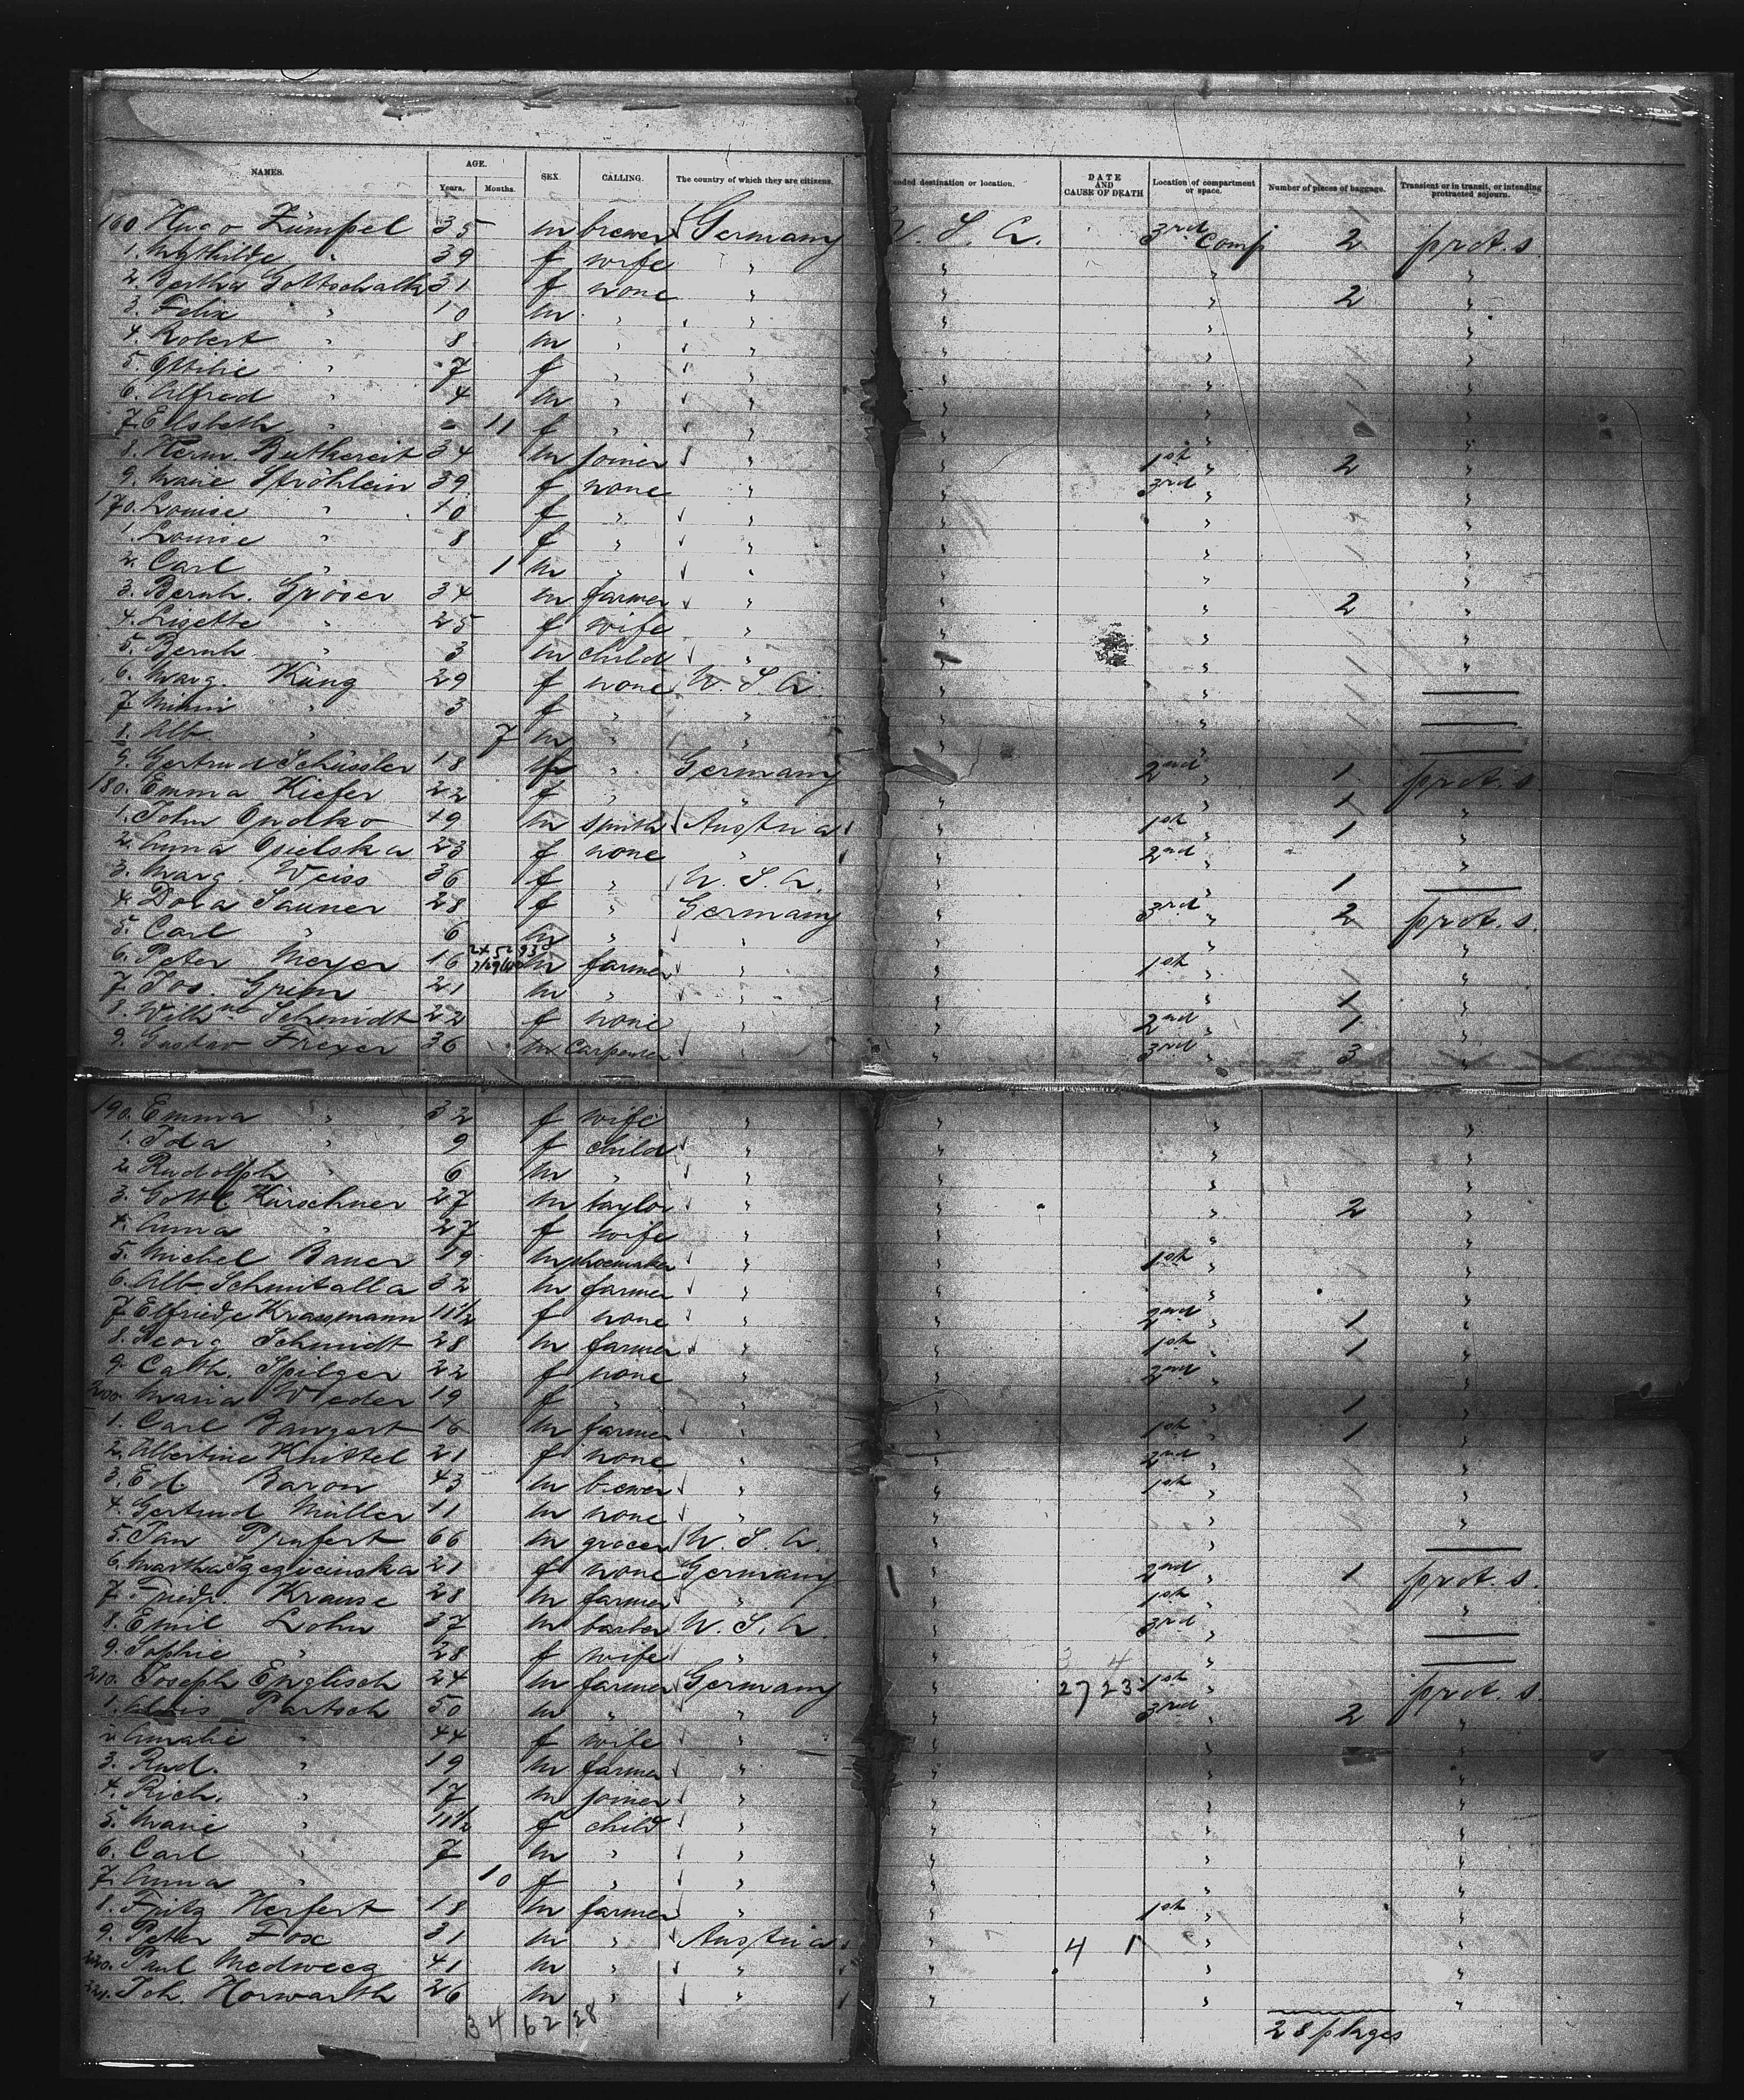 NAMES. AGE. Years. Months. SEX. CALLING. The country of which they are citizens. nded destination or location. DATE AND CAUSE OF DEATH Location of compartment or space. Number of pieces of baggage. Transient or in transit, or intending protracted sojourn.
160 Hugo Zümpel 35 m brewer Germany U. S. A. 3rd Comp 2 prot. s.
1. Mathilde " 39 f wife " " " "
2. Bertha Gottschalk 31 f none " " " 2 "
3. Felix " 10 m " " " " "
4. Robert " 8 m " " " " "
5. Ottilie " 7 f " " " " "
6. Alfred " 4 m " " " " "
7. Elsbeth " 11 f " " " " "
8. Herm. Butkereit 34 m joiner " " 1st " 2 "
9. Marie Ströhlein 39 f none " " 3rd " "
170. Louise " 10 f " " " " "
1. Louise " 8 f " " " " "
2. Carl " 1 m " " " " "
3. Bernh. Gröser 34 m farmer " " " 2 "
4. Lisette " 25 f wife " " " "
5. Bernh. " 3 m child " " " "
6. Marg. King 29 f none U. S. A. " "
7. Minni " 3 f " " " "
8. Alb. " 7 m " " " "
9. Gertrud Schüssler 18 f " Germany " 2nd " 1 prot. s.
180. Emma Kiefer 22 f " " " " 1 "
1. John Opolko 19 m smith Austria " 1st " 1 "
2. Anna Opielska 23 f none " " 2nd " "
3. Marg Weiss 36 f " U. S. A. " " 1
4. Dora Sauner 28 f " Germany " 3rd " 2 prot. s.
5. Carl " 6 m " " " " "
6. Peter Meyer 16 m farmer " " 1st " "
7. Jos. Grim 21 m " " " " 1 "
8. Wilhne Schmidt 22 f none " " 2nd " 1 "
9. Gustav Freyer 36 m Carpenter " " 3rd " 3 "
190. Emma " 32 f wife " " " "
1. Ida " 9 f child " " " "
2. Rudolph " 6 m " " " " "
3. Gottl. Kürschner 27 m taylor " " " 2 "
4. Anna " 27 f wife " " " "
5. Michel Bauer 19 m shoemaker " " 1st " "
6. Alb. Schmitalla 32 m farmer " " " "
7. Elfriede Krassmann 11½ f none " " 2nd " 1 "
8. Georg Schmidt 28 m farmer " " 1st " 1 "
9. Cath. Spilger 22 f none " " 2nd " "
200. Maria Wieder 19 f " " " " 1 "
1. Carl Bangert 16 m farmer " " 1st " 1 "
2. Albertine Knittel 21 f none " " 2nd " "
3. Ed Baron 43 m brewer " " 1st " "
4. Gertrud Müller 11 m none " " " "
5. Jan 66 m grocer U. S. A. " "
6. Martha 21 f none Germany " 2nd " 1 prot. s.
7. Friedr. Krause 28 m farmer " " 1st " "
8. Emil Lohn 37 m barber U. S. A. " 3rd "
9. Sophie " 28 f wife " " "
210. Joseph Englisch 24 m farmer Germany " 1st " prot. s.
1. Alois Partsch 50 m " " " 3rd " 2 "
2. Amalie " 44 f wife " " " "
3. Rud. " 19 m farmer " " " "
4. Rich. " 17 m joiner " " " "
5. Marie " 11½ f child " " " "
6. Carl " 7 m " " " " "
7. Anna " 10 f " " " " "
8. Fritz Herfert 18 m farmer " " 1st " "
9. Peter Fox 31 m " Austria " 4 1 " "
220. Paul Medwecz 41 m " " " " "
221. Joh. Horwarth 26 m " " " " "
34 62 28 28 pkges